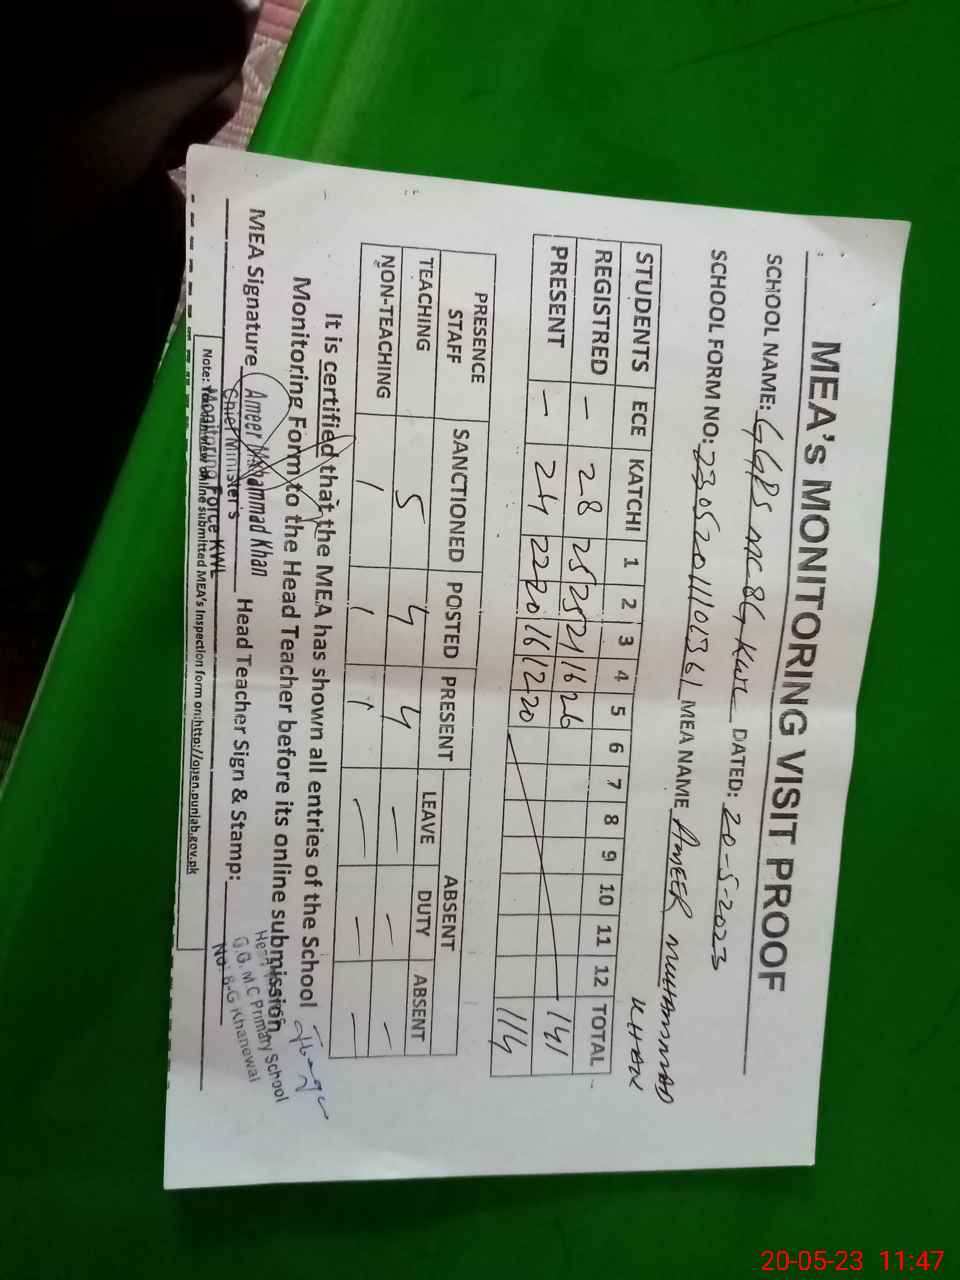 MEA's MONITORING VISIT PROOF
SCHOOL NAME: GGPS MC 8G KWL DATED: 20-5-2023
SCHOOL FORM NO: MEA NAME AMEER MUHAMMAD KHAN
STUDENTS ECE KATCHI 1 2 3 4 5 6 7 8 9 10 11 12 TOTAL
REGISTRED – 28 25 25 21 16 26 141
PRESENT – 24 22 20 16 12 20 114
PRESENCE STAFF SANCTIONED POSTED PRESENT ABSENT
LEAVE DUTY ABSENT
TEACHING 5 4 4 – – –
NON-TEACHING 1 1 1 – – –
It is certified that the MEA has shown all entries of the School
Monitoring Form to the Head Teacher before its online submission.
MEA Signature Head Teacher Sign & Stamp:
Ameer Muhammad Khan
Chief Minister's
Monitoring Force KWL
G.G.M.C Primary School
No: 8-G Khanewal
Note: You can view online submitted MEA's Inspection form on:http://open.punjab.gov.pk
20-05-23 11:47